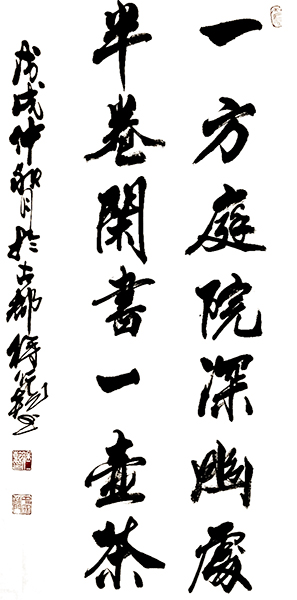 一方庭院深幽處
半卷閑書一壺茶
戊戌仲秋月於古都